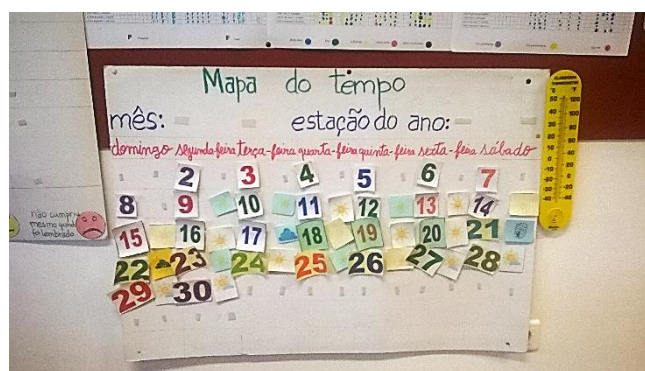 Mapa do tempo
mês: estação do ano:
domingo segunda-feira terça-feira quarta-feira quinta-feira sexta-feira sábado
2 3 4 5 6 7
8 9 10 11 12 13 14
15 16 17 18 19 20 21
22 23 24 25 26 27 28
29 30
não cumpriu
mesmo quando
foi lembrado